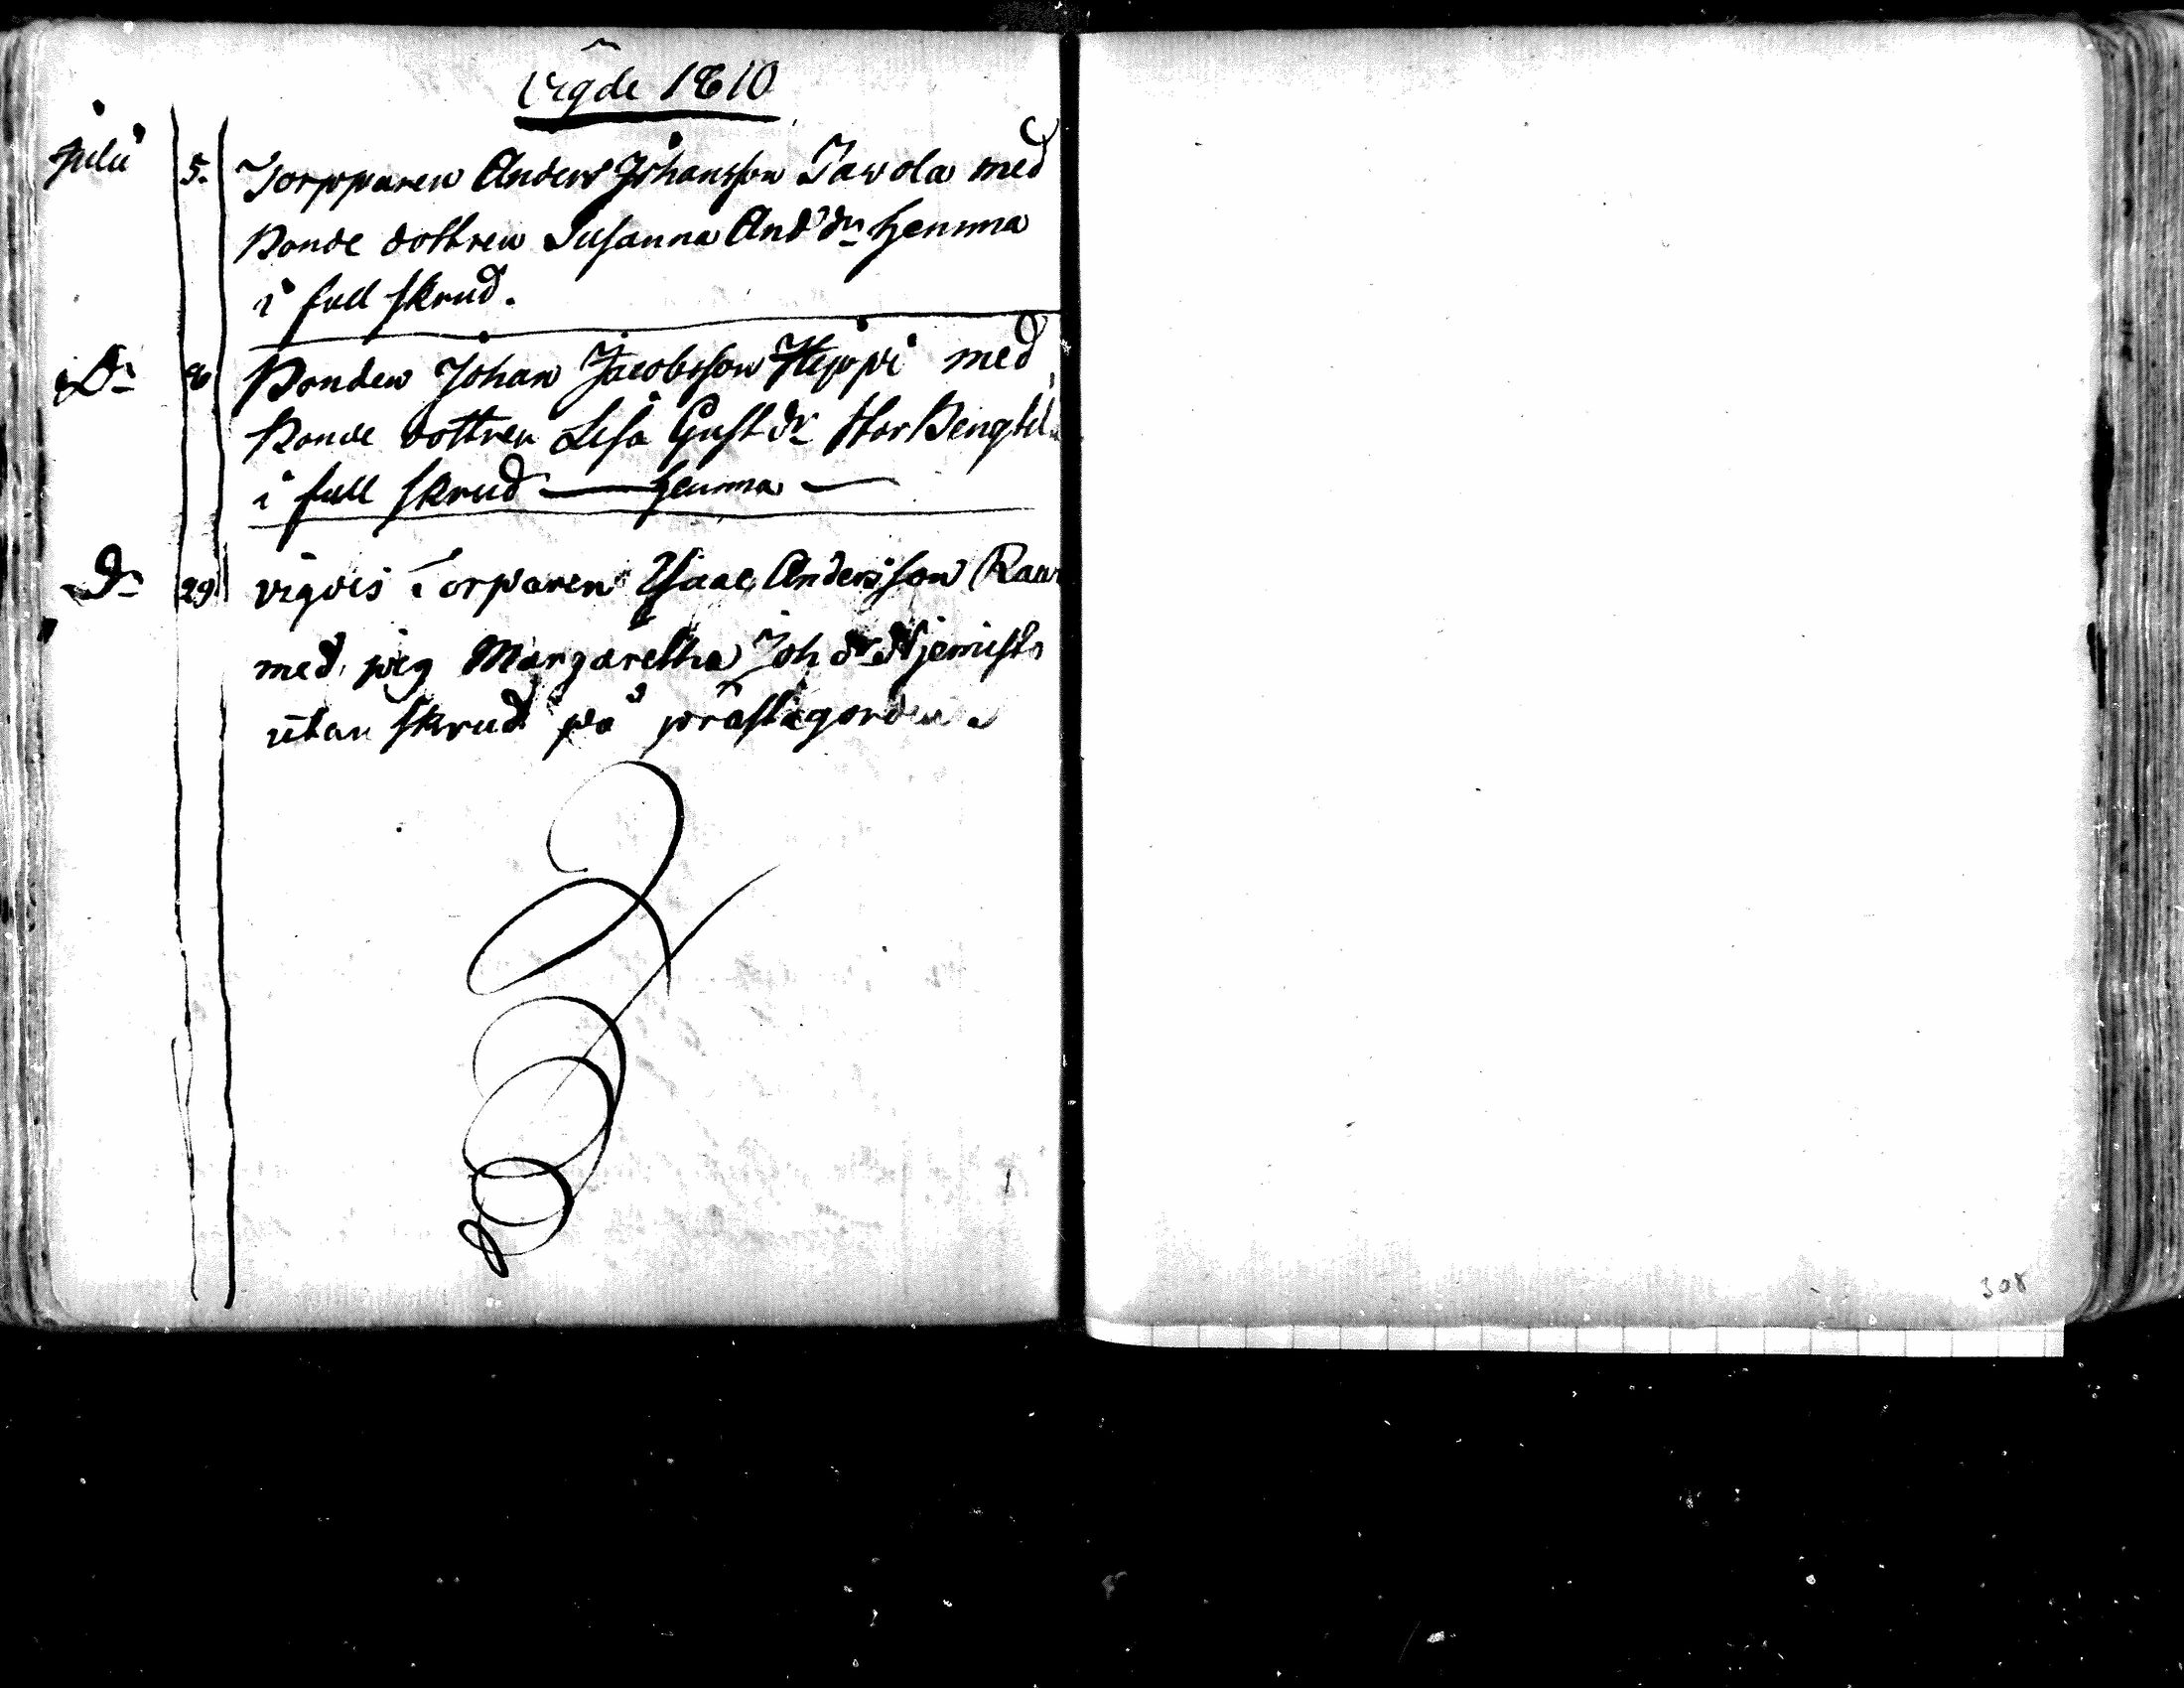 Vigde 1810
Julii 5. Torpparen Anders Johansson Tavola med
Bonde dottren Susanna And dr hemma
i full skrud.
Do 8 Bonden Johan Jacobsson Heppi med
Bonde dottren Lisa Gust dr StorBengtd
i full skrud — hemma —
Do 29 vigdes Torparen Isaac Andersson
med pig Margaretha Joh dr
utan skrud på prästegorden
308